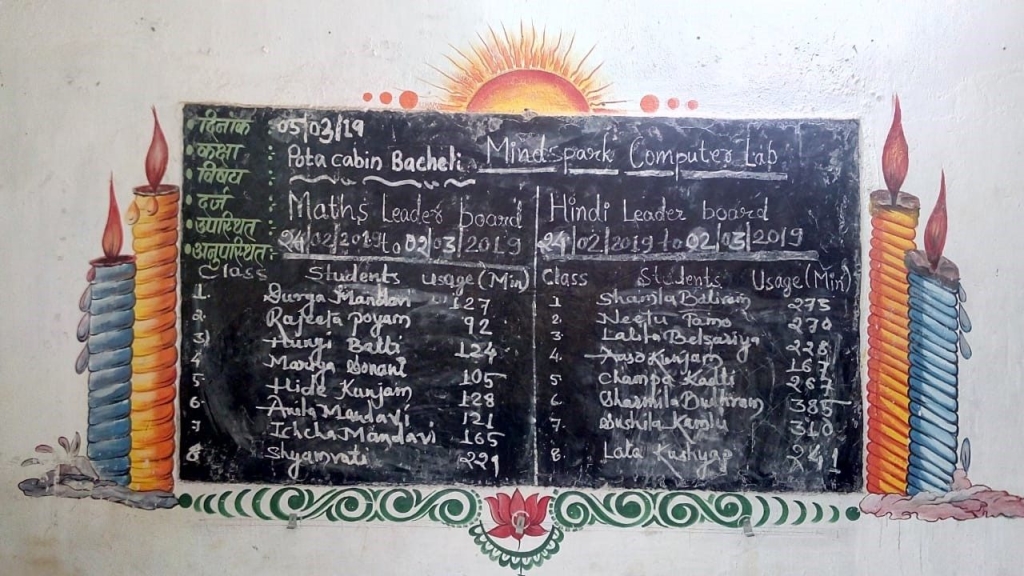 • दिनांक : 05/03/19
• कक्षा : Pota cabin Bacheli Mindspark Computer Lab
• विषय :
• दर्ज : Maths Leader board Hindi Leader board
उपस्थित :
• अनुपस्थित : 24/02/2019 to 02/03/2019 24/02/2019 to 02/03/2019
Class Students usage (Min) Class Students Usage (Min)
1. Durga Mandavi 127 1 Shamla Batiram 275
2. Rajeeta poyam 92 2 Neetu Tamo 270
3) Hungi Batti 124 3 Lalita Belsariya 228
4 105 4. Kunjam 167
5 Hide Kunjam 128 5. Champa 267
6 Anita Mandavi 121 6 Sharmila Budhram 385
7 Ichcha Mandavi 165 7. Sushila 310
8 Shyamvati 221 8. Lata Kashyap